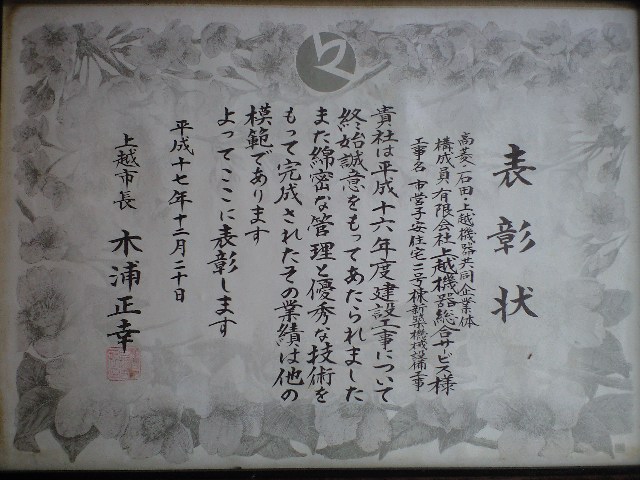 表彰状
高菱・石田・上越機器共同企業体
構成員 有限会社上越機器総合サービス様
工事名 市営子安住宅二号棟新築機械設備工事
貴社は平成十六年度建設工事について
終始誠意をもってあたられました
また綿密な管理と優秀な技術を
もって完成されたその業績は他の
模範であります
よってここに表彰します
平成十七年十二月二十日
上越市長 木浦正幸